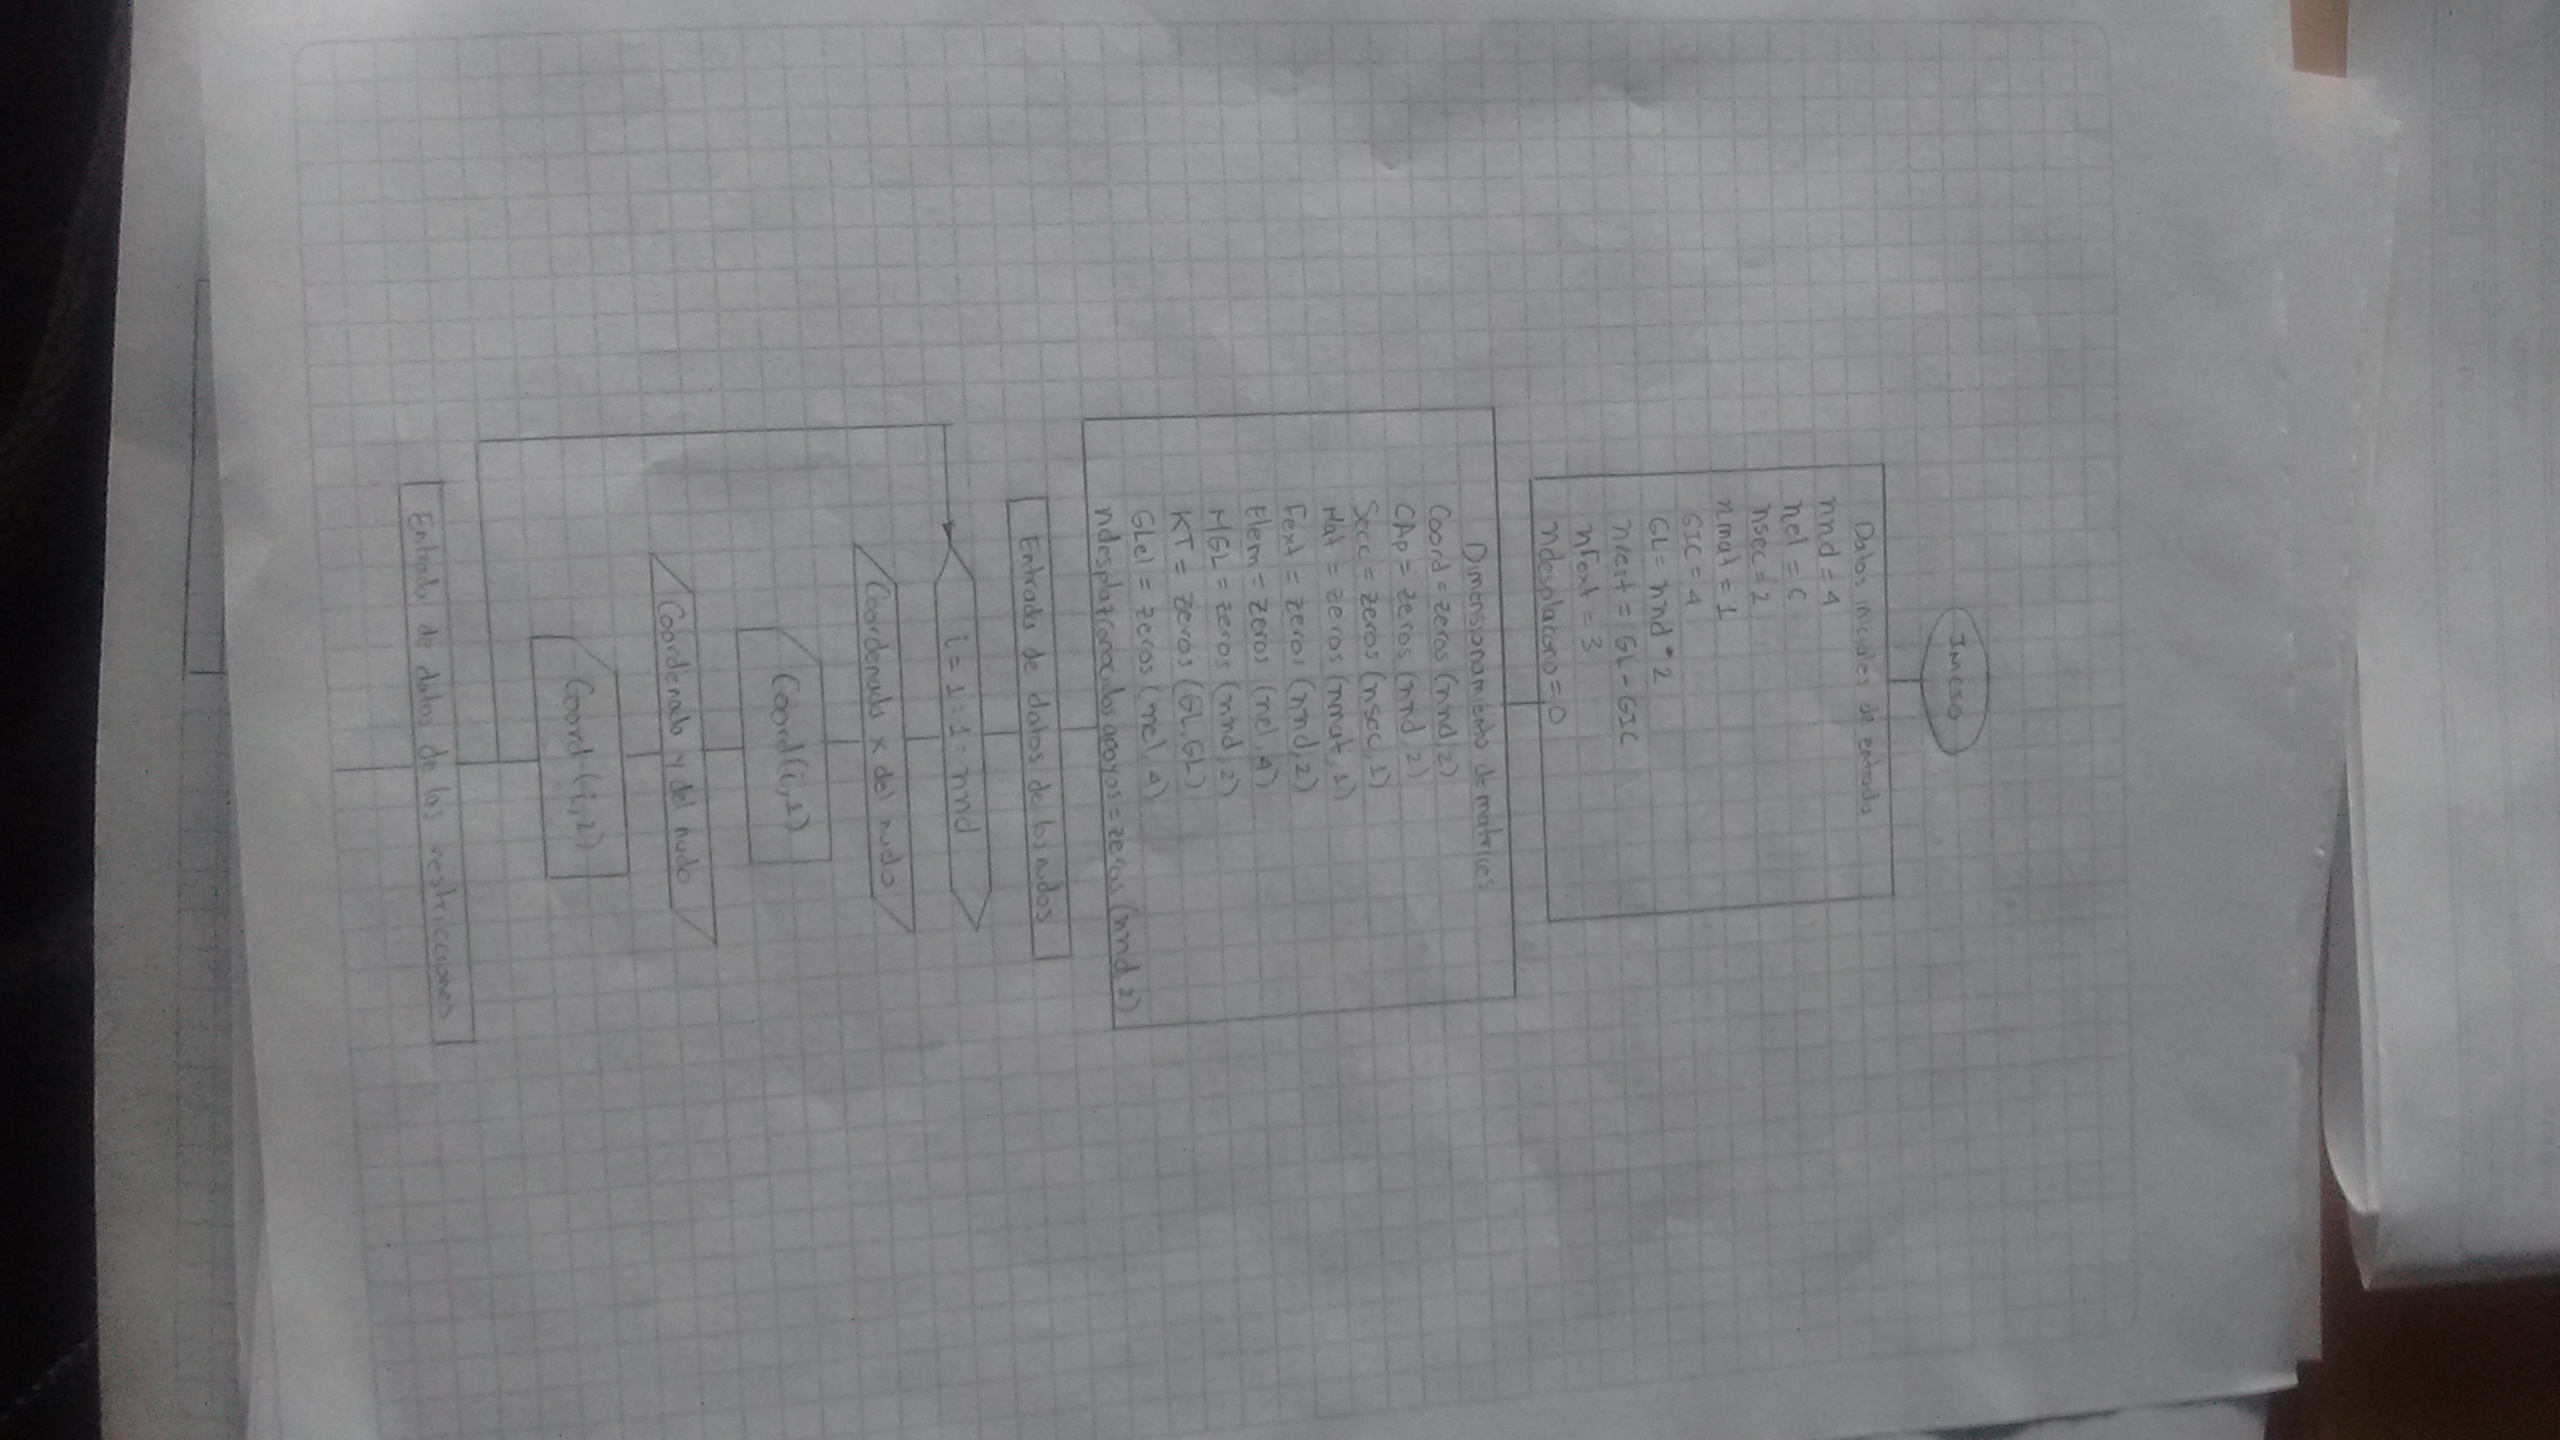 Inicio
Datos iniciales de entrada
nnd = 4
nel = 6
nsec = 2
nmat = 1
GIC = 4
GL = nnd * 2
nrest = GL - GIC
nFext = 3
ndesplacono = 0
Dimensionamiento de matrices
Coord = zeros (nnd, 2)
CAp = zeros (nnd, 2)
Secc = zeros (nsec, 1)
Mat = zeros (nmat, 1)
Fext = zeros (nnd, 2)
Elem = zeros (nel, 4)
MGL = zeros (nnd, 2)
KT = zeros (GL, GL)
GLel = zeros (nel, 4)
apoyos = zeros (nnd 2)
Entrada de datos de los nudos
i = 1 : 1 : nnd
Coordenada x del nudo
Coord (i, 1)
Coordenada y del nudo
Coord (i, 2)
Entrada de datos de las restricciones